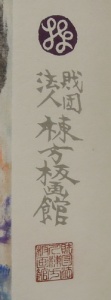 財団
法人
棟方板画館